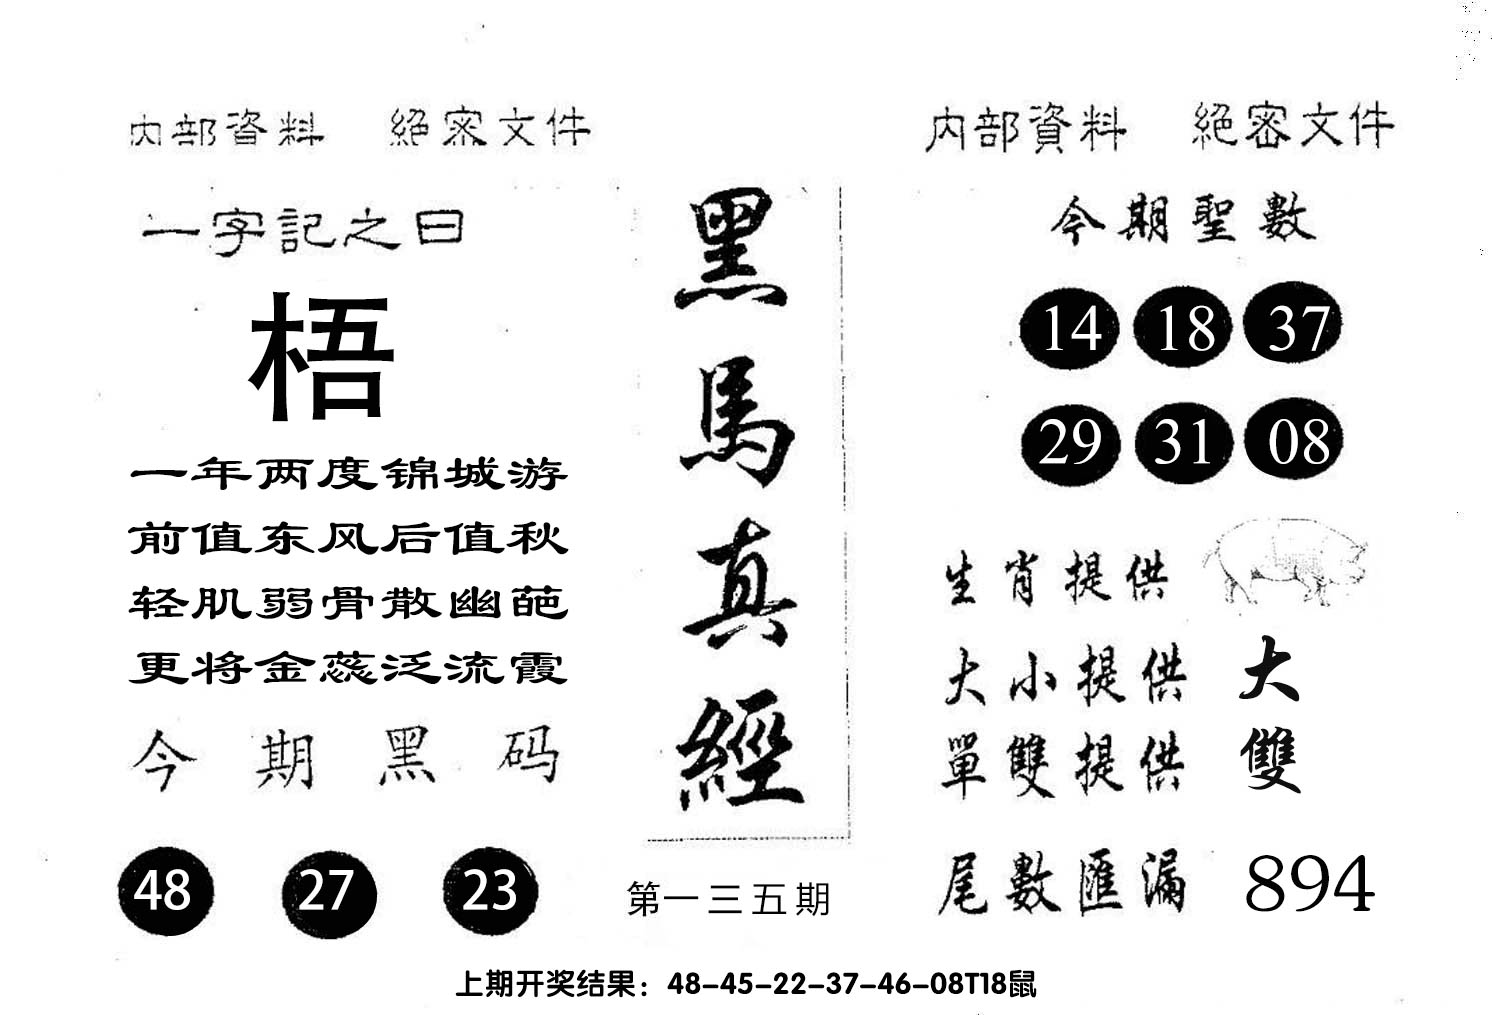 內部資料 絕密文件
一字記之曰
梧
一年两度锦城游
前值东风后值秋
轻肌弱骨散幽葩
更将金蕊泛流霞
今期黑码
48 27 23
黑馬真經
第一三五期
內部資料 絕密文件
今期聖數
14 18 37
29 31 08
生肖提供
大小提供 大
單雙提供 雙
尾數匯漏 894
上期开奖结果：48-45-22-37-46-08T18鼠